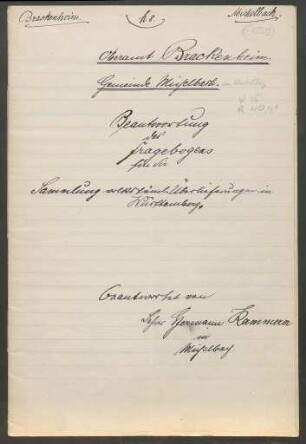 Brackenheim.
Michelbach.
Oberamt Brackenheim.
Gemeinde Michelbach.
Beantwortung
des
Fragebogens
für die
Sammlung volkstüml. Überlieferungen in
Württemberg.
beantwortet von
Lehrer Hermann
in
Michelbach